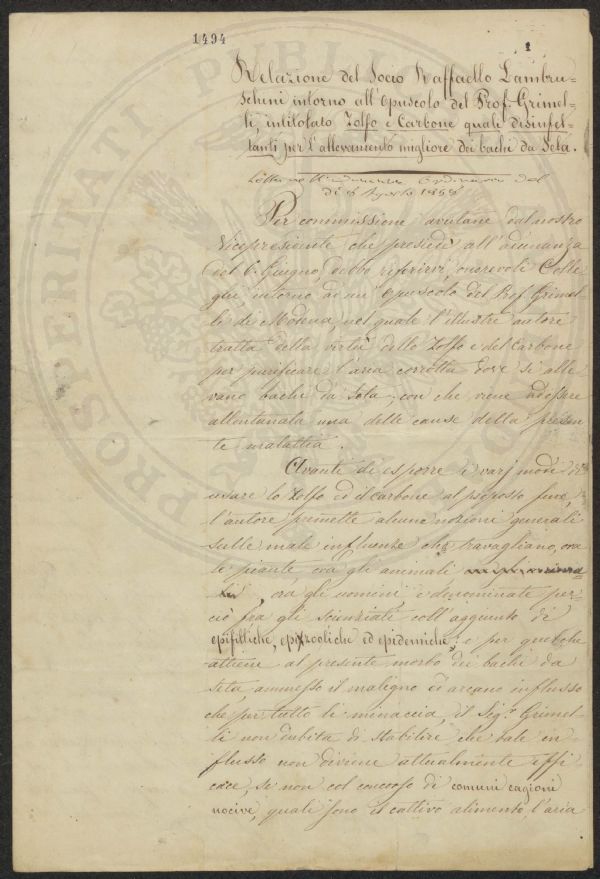 1494
1
Relazione del Socio Raffaello Lambru=
schini intorno all'Opuscolo del Prof. Grimel=
li, intitolato Zolfo e Carbone quali disinfet=
tanti per l'allevamento migliore dei bachi da Seta.
Letta nell'Adunanza Ordinaria del
dì 8 Agosto 1858
Per commissione avutane dal nostro
Vicepresidente che presiedè all'adunanza
del 6 Giugno, debbo riferirvi, onorevoli Colle
ghi intorno ad un opuscolo del Prof. Grimel
li di Modena, nel quale l'illustre autore
tratta della virtù dello Zolfo e del Carbone
per purificare l'aria corrotta dove si alle
vano bachi da Seta, con che viene ad essere
allontanata una delle cause della presen
te malattia.
Avanti di esporre i varj modi di
usare lo Zolfo ed il carbone al proposto fine,
l'autore premette alcune nozioni generali
sulle male influenze che travagliano, ora
le piante ora gli animali
, ora gli uomini e denominate per
ciò fra gli scienziati coll'aggiunto di
epifitiche, epizootiche ed epidemiche; e per quel che
attiene al presente morbo dei bachi da
Seta, ammesso il maligno ed arcano influsso
che per tutto li minaccia, il Sigr. Grimel=
li non dubita di stabilire che tale in
flusso non diviene attualmente effi
cace, se non col concorso di comuni cagioni
nocive, quali sono il cattivo alimento l'aria